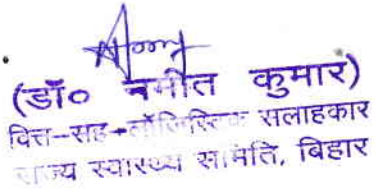 (डॉ० नमीत कुमार)
वित्त-सह-लॉजिस्टिक सलाहकार
राज्य स्वास्थ्य समिति, बिहार